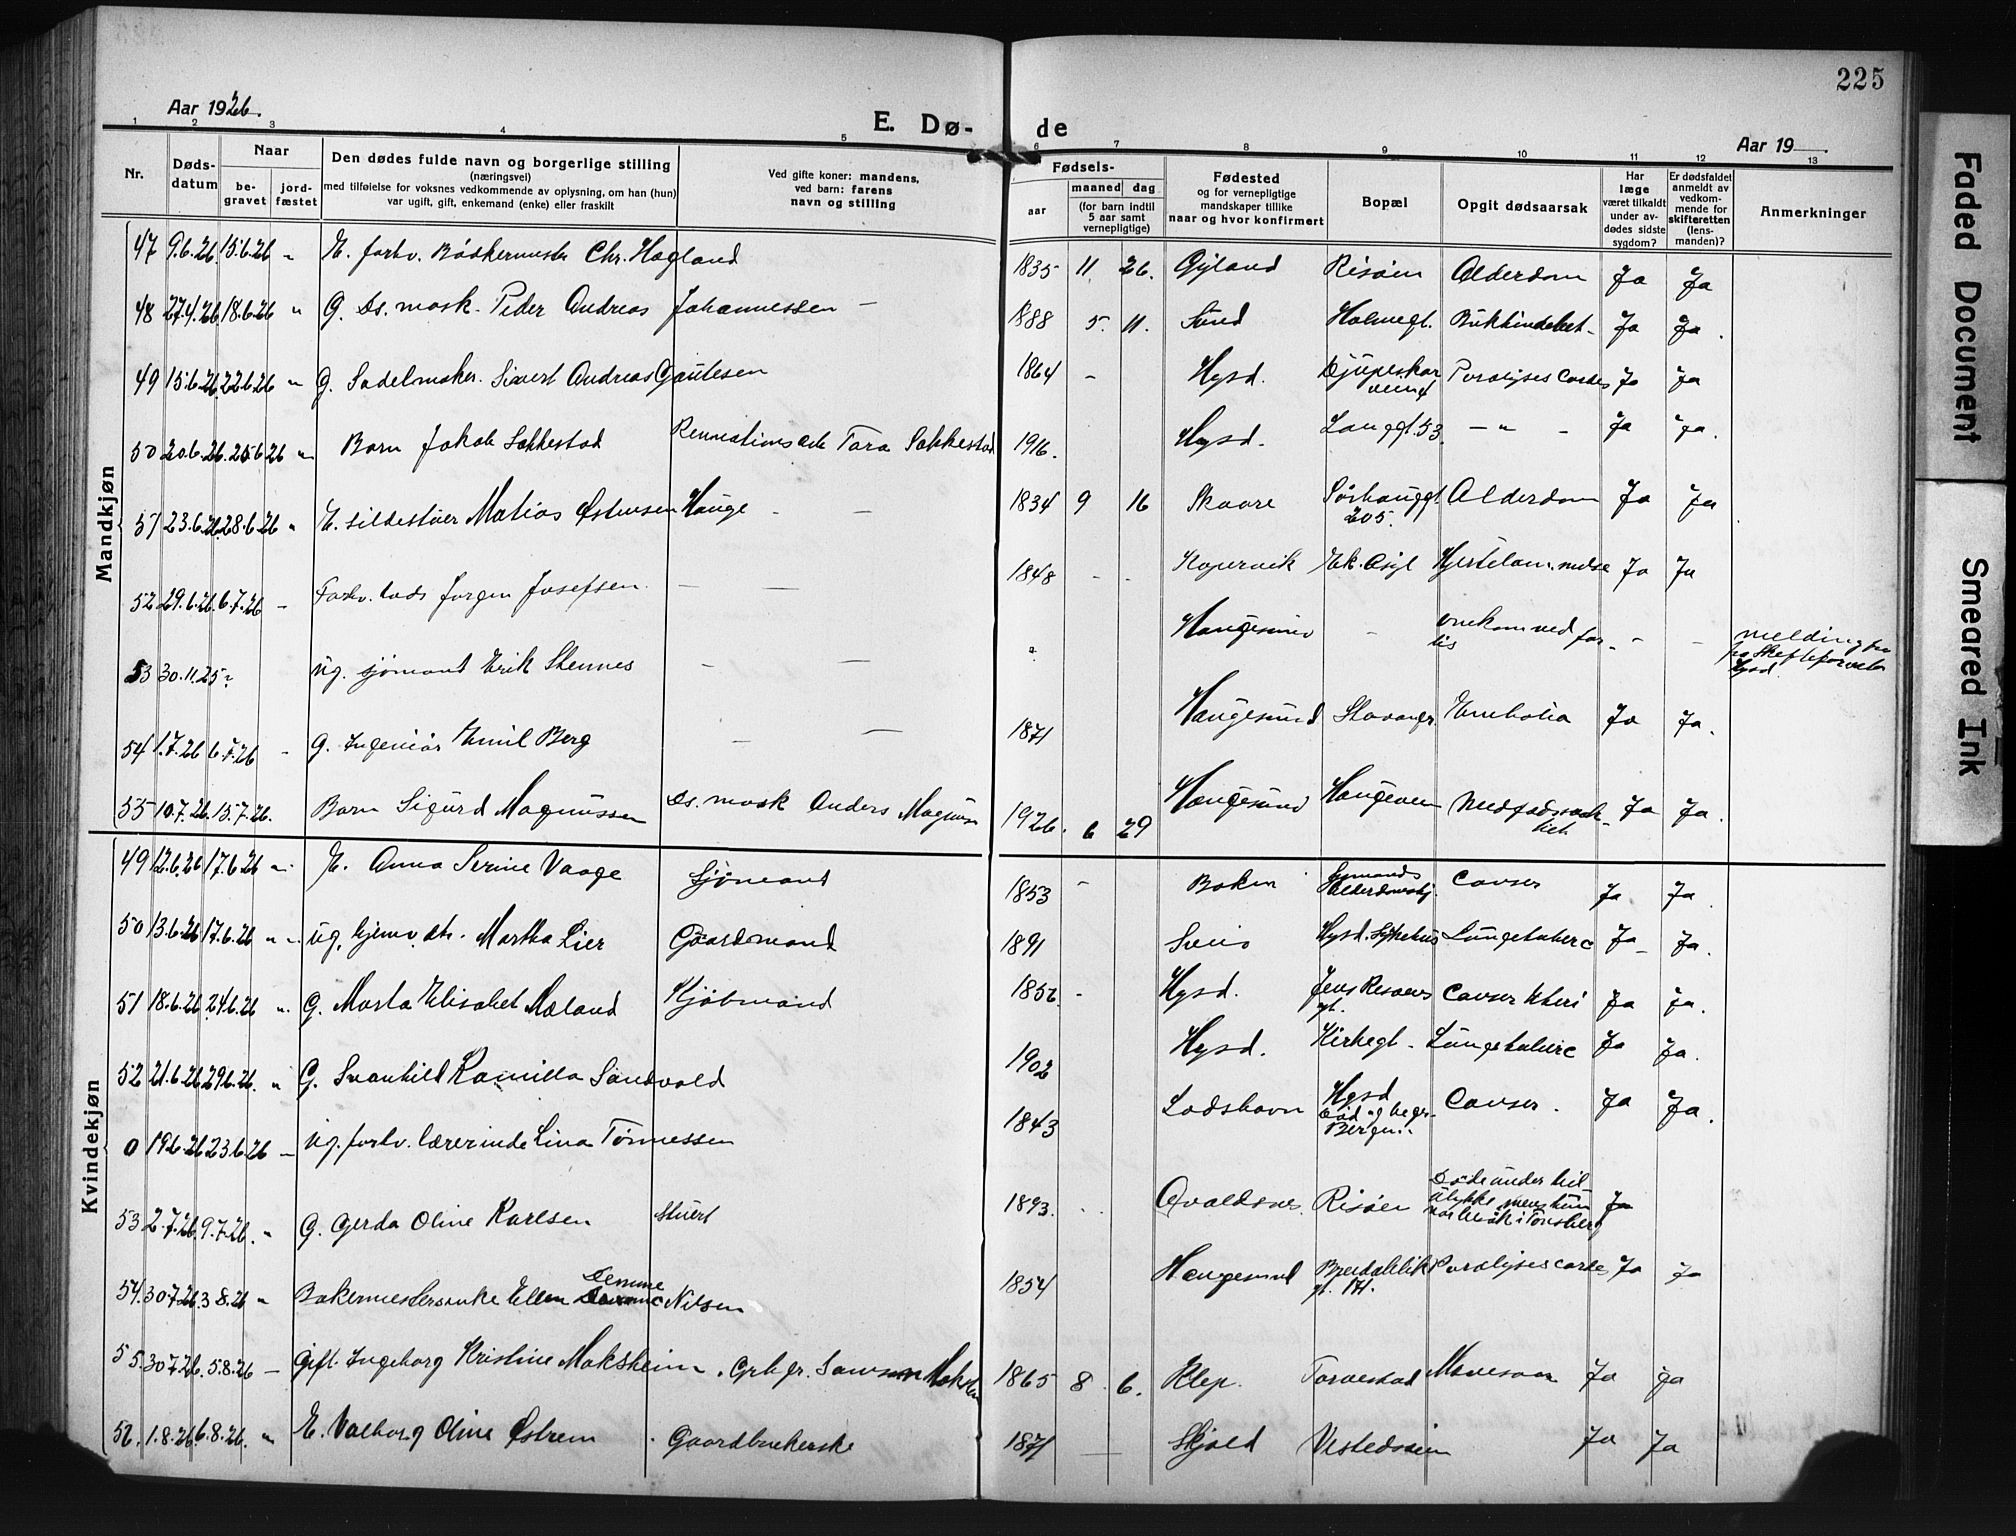 225
Aar 1926.
E. Dø- de
Aar 19
1 2 3 4 5 6 7 8 9 10 11 12 13
Nr.
Døds-
datum
Naar
be-
gravet
jord-
fæstet
Den dødes fulde navn og borgerlige stilling
(næringsvei)
med tilføielse for voksnes vedkommende av oplysning, om han (hun)
var ugift, gift, enkemand (enke) eller fraskilt
Ved gifte koner: mandens,
ved barn: farens
navn og stilling
Fødsels-
aar
maaned dag
(for barn indtil
5 aar samt
vernepligtige)
Fødested
og for vernepligtige
mandskaper tillike
naar og hvor konfirmert
Bopæl
Opgit dødsaarsak
Har
læge
været tilkaldt
under av-
dødes sidste
sygdom?
Er dødsfaldet
anmeldt av
vedkom-
mende for
skifteretten
(lens-
manden)?
Anmerkninger
Mandkjøn
47 9.6.26. 15.6.26 " E. forhv. Bødkermester Chr. Hagland 1835 11 26. Gyland Risøen Alderdom Ja Ja
48 27.4.26 18.6.26 " G. Ds. mask. Peder Andreas Johannessen — 1888 5. 11. Sund Holmegt. Ja Ja.
49 15.6.26 22.6.26 " G. Sadelmaker. Sivert Andreas Gautesen 1864 - Hgsd. Djupeskar
veien Paralyses cordes Ja Ja
50 20.6.26. 25.6.26 " Barn Jakob Sakkestad Tora Sakkestad 1916. Hgsd. Langgt. 53. — " - Ja Ja.
51 23.6.26. 28.6.26 " E. sildestuer Matias Østensen Hauge - - 1834 9 16 Skaare Sørhauggt
205. Alderdom Ja Ja
52 29.6.26. 6.7.26 - Forhv. lods Jørgen Josefsen. — — 1848 - - Kopervik Ek. Asyl Ja Ja
53 30.11.25 ? Ug. sjømand Erik Stennes - — ? Haugesund - omkom ved for-
lis - - melding fra
fra Skifteforvalter
Hgsd.
54 1.7.26 6.7.26 - G. Ingeniør Emil Berg — — 1871 Haugesund Stavanger Embolia Ja Ja.
55 10.7.26. 15.7.26. Barn Sigurd Magnussen Ds. mask Anders Magnus 1926. 6 29 Haugesund Haugeveien Medfødt svak-
het Ja Ja.
Kvindekjøn
49 12.6.26 17.6.26 " E. Anna Serine Vaage Sjømand 1853 - Boken Sjømands
Alderdomshj. Cancer Ja Ja.
50 13.6.26 17.6.26 " Ug. hjemv. dtr. Martha Lier Gaardmand 1891 Sveio Hgsd. Sykehus Lungetuberc Ja - Ja.
51 18.6.26 24.6.26 " G. Marta Elisabet Mæland Kjøbmand 1852. - Hgsd. Jens Risøens
gt. Cancer Uteri Ja Ja.
52 21.6.26 29.6.26. " G. Svanhild Kamilla Sandvold 1902 Hgsd. Kirkegt. Lungetuberc Ja Ja.
0 19.6.26 23.6.26 — Ug. forhv. lærerinde Lina Tønnessen 1843 Ladshavn Hgsd
død og begr.
Bergen. Cancer. Ja Ja.
53 2.7.26. 9.7.26. " G. Gerda Oline Karlsen Stuert 1893. Avaldsnes. Risøen Døde under bil
ulykke mens hun
var besøk i Tønsberg Ja
54. 30.7.26. 3.8.26 " Bakermestersenke Ellen Demme Nilsen 1854 Haugesund
gt. 171. Paralyses cordes Ja Ja
55. 30.7.26. 5.8.26 — Gift Ingeborg Kristine Maksheim. 1865 8 6. Klep. Torvestad Mavesaar Ja Ja
56. 1.8.26. 6.8.26. " E. Valborg Oline Østrem . Gaardbrukerske 1871 — Skjold Vestedsveien Ja Ja
Faded Document
Smeared Ink